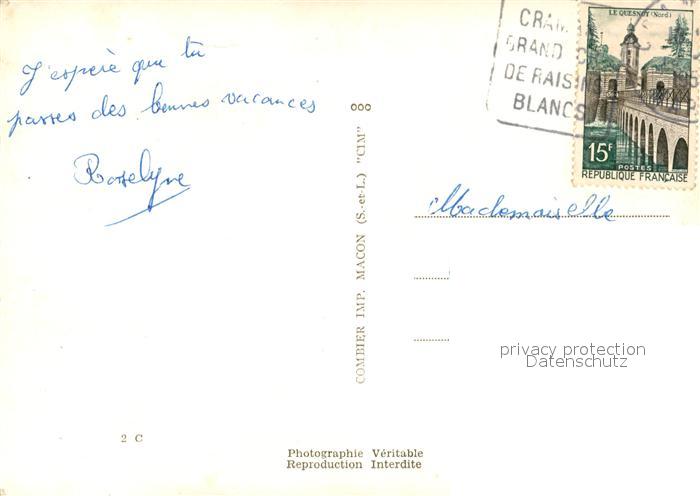 J'espère que tu
passes des bonnes vacances
Roselyne
2 C
Photographie Véritable
Reproduction Interdite
COMBIER IMP. MACON (S.-et-L.) "CIM"
CRAM
GRAND
DE RAISINS
BLANCS
LE QUESNOY (Nord)
15F
POSTES
REPUBLIQUE FRANÇAISE
Mademoiselle
privacy protection
Datenschutz